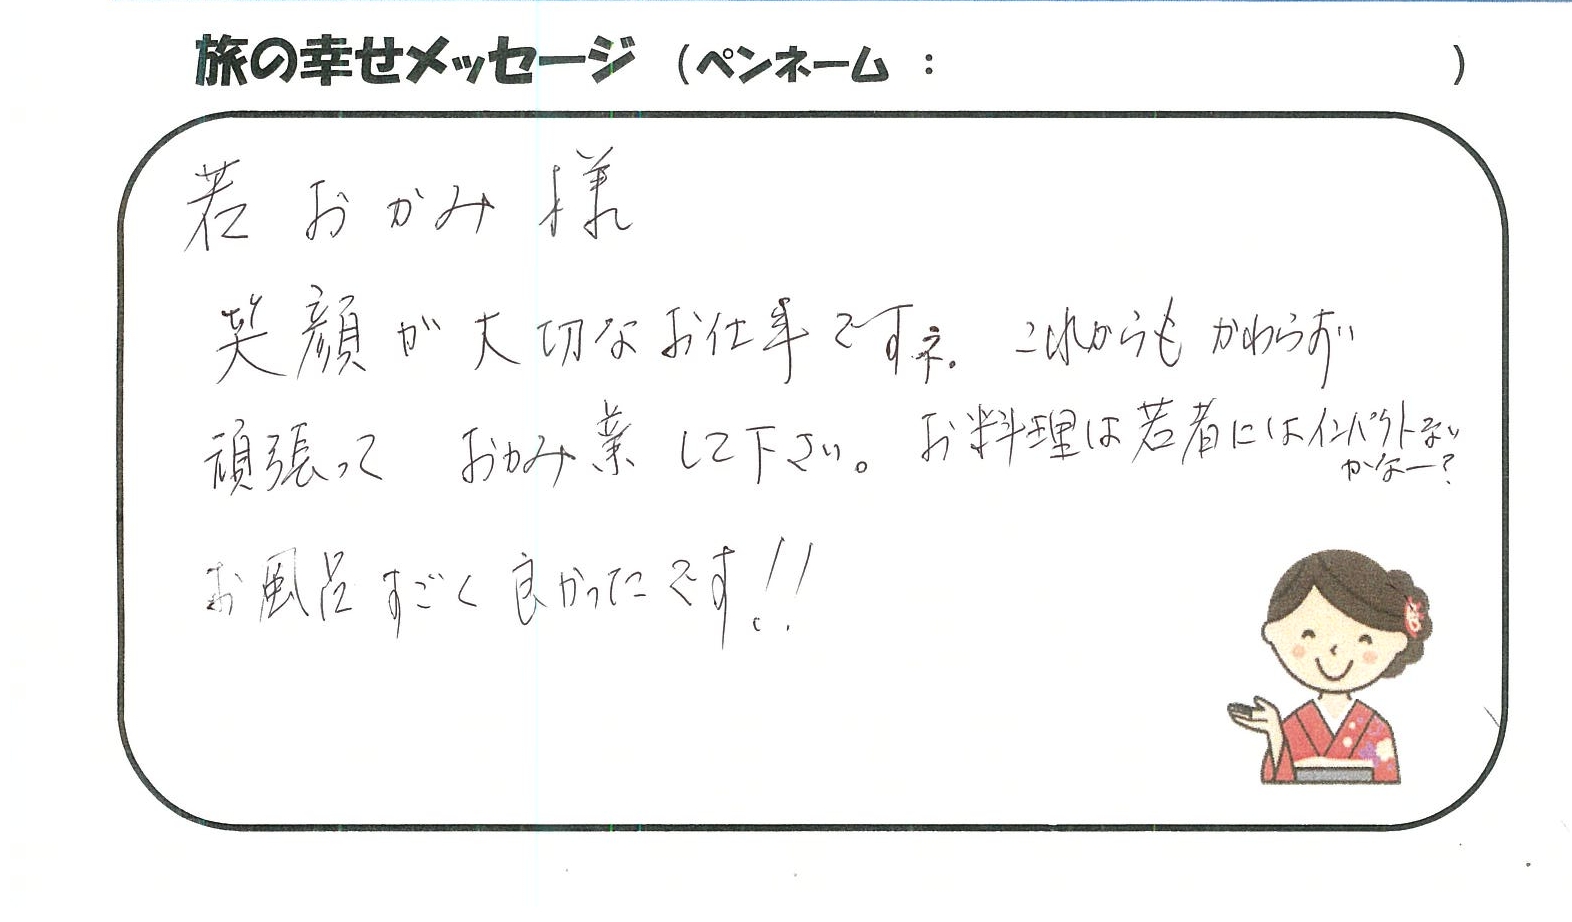 旅の幸せメッセージ （ペンネーム： ）
若おかみ様
笑顔が大切なお仕事ですネ。これからもかわらずい
頑張っておかみ業して下さい。お料理は若者にはインパクトない
かなー?
お風呂すごく良かったです!!